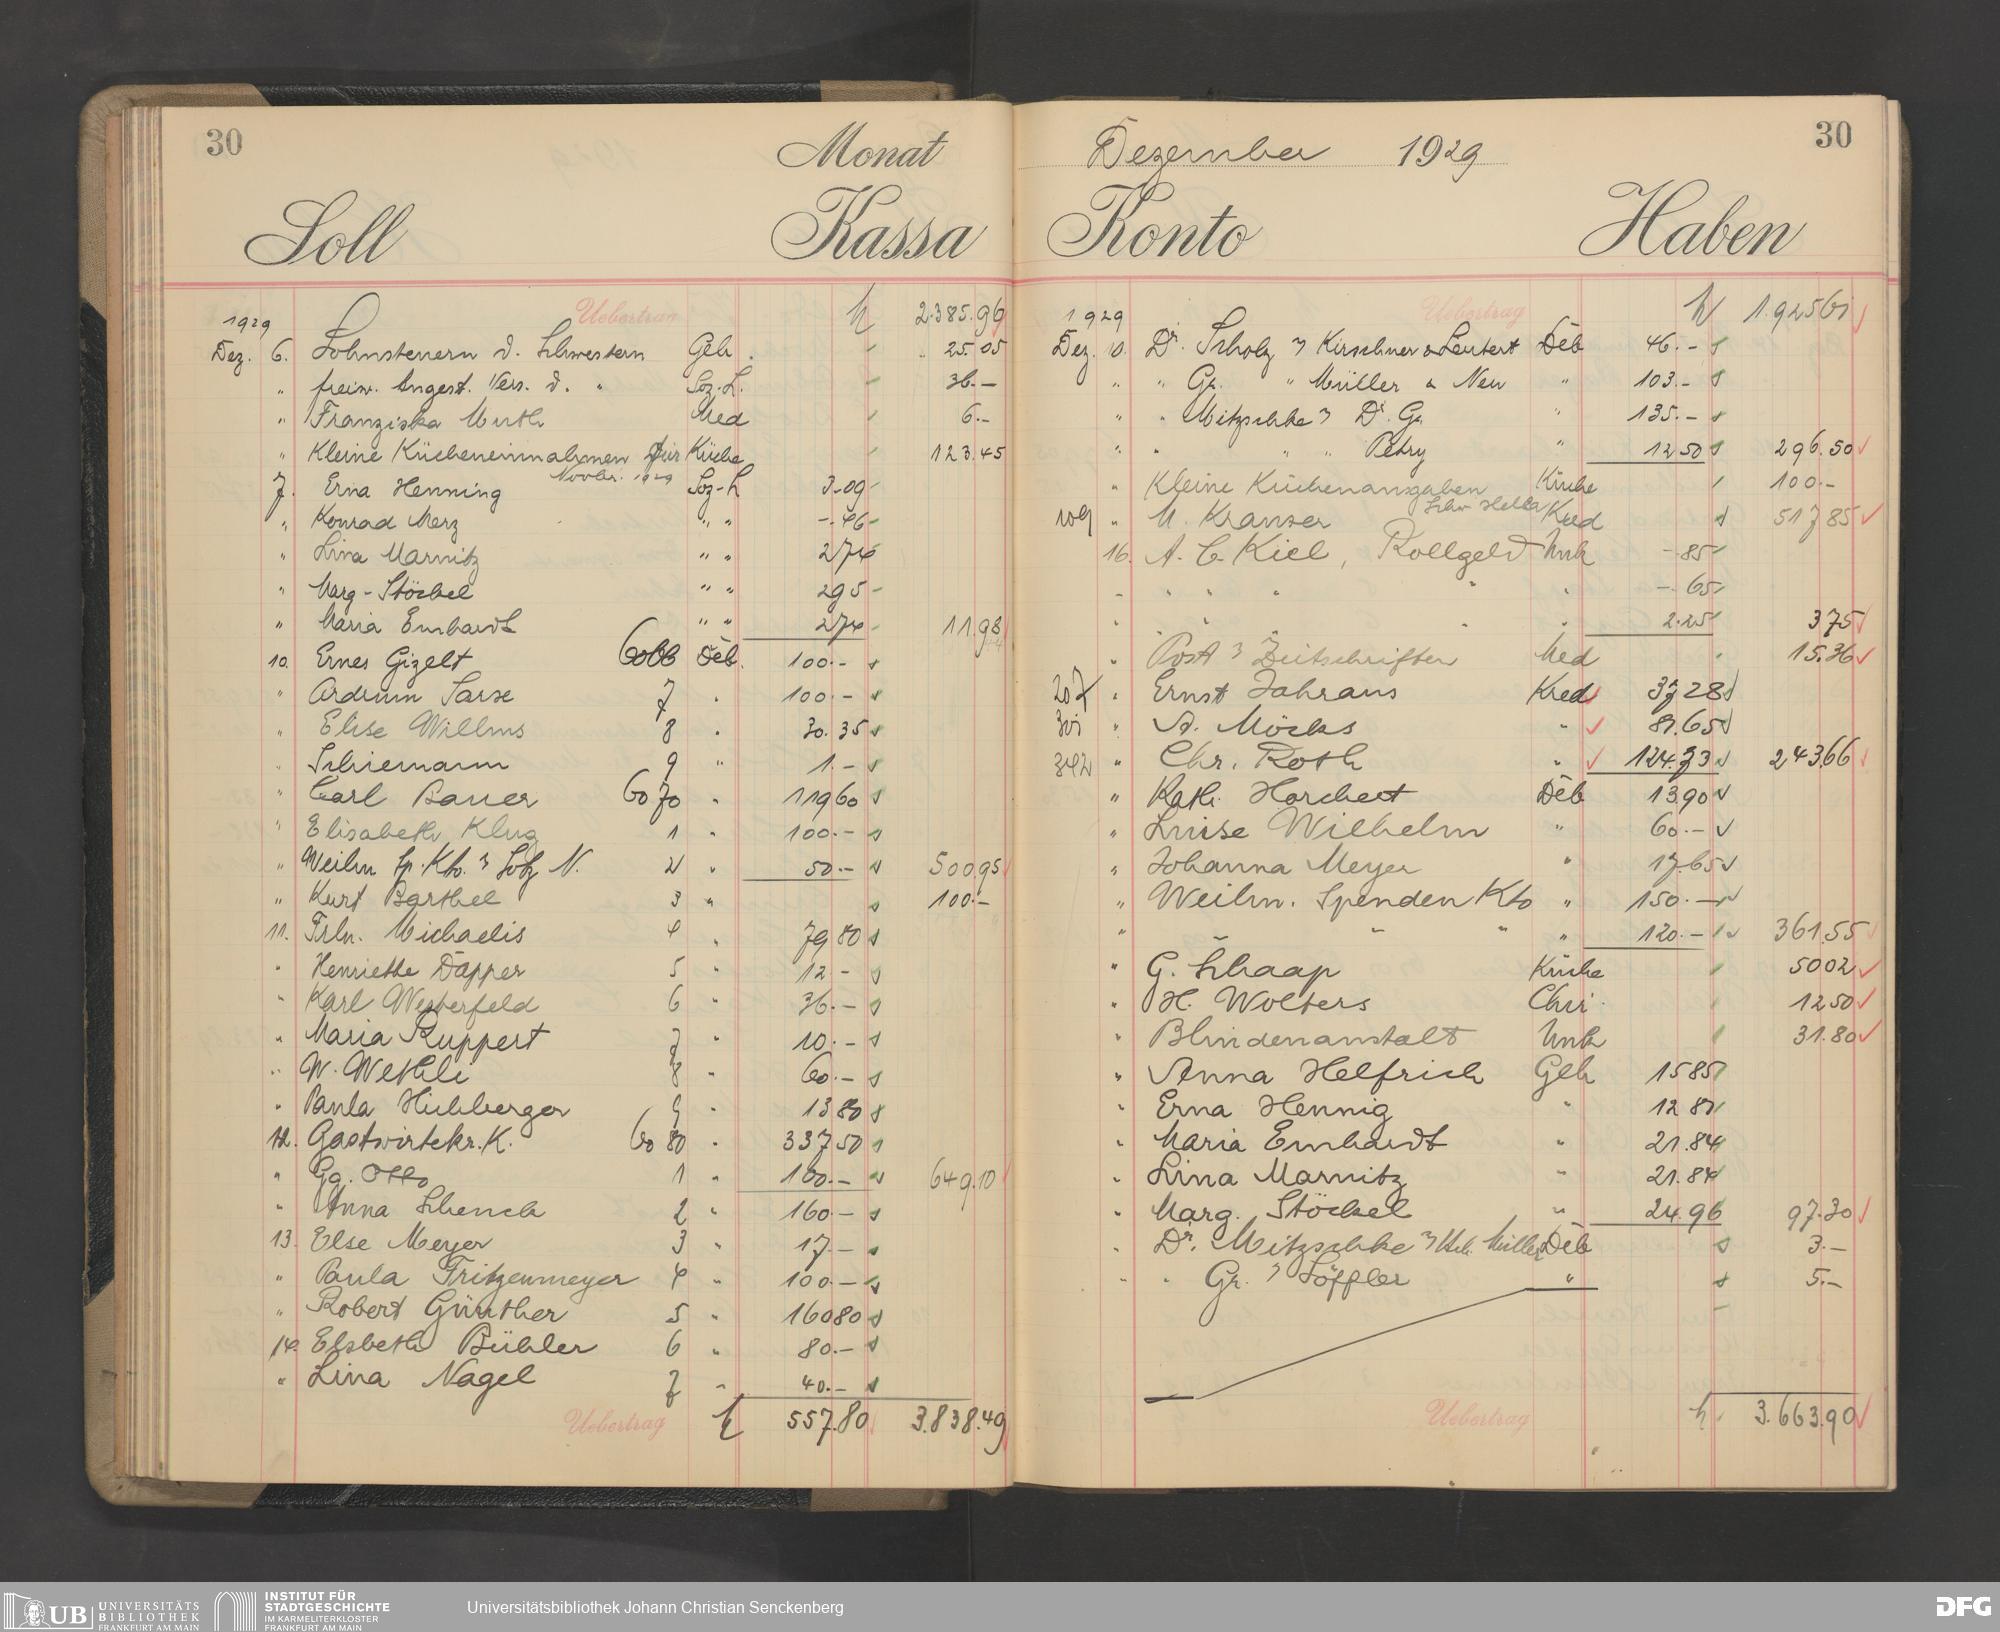 30
Monat
Soll Kassa
Uebertrag 2.385.96
1929
Dez. 6. Lohnsteuern d. Schwestern Geh. 25.05
" freiw. Angest. Vers. d. " Soz. L. 36.-
" Franziska Muth Med 6.-
" Kleine Kücheneinnahmen für Küche 123.45
Novbr. 1929
7. Erna Henning Soz-L 3.09
" Konrad Merz " " -.46
" Lina Marnitz " " 2 74
" Marg. Stöckel " " 2 95
" Maria Emhardt " " 2 74 11.98
10. Ernes Gizelt 6066 Deb. 100.-
" Arduin Sarse 7 " 100.-
" Elise Willms 8 " 30.35
" Schiemann 9 " 1.-
" Carl Bauer 6070 " 119 60
" Elisabeth Klug 1 " 100.-
" Weihn Sp. Kto. N. 2 " 50.- 500.95
" Kurt Barthel 3 " 100.-
11. Frln. Michaelis 4 " 79 80
" Henriette Dapper 5 " 12.-
" Karl Westerfeld 6 " 36.-
" Maria Ruppert 7 " 10.-
" W. Wethli 8 " 60.-
" Paula Hichberger 9 " 13 80
12. Gastwirtekr. K. 6080 " 337 50
" Gg. Otto 1 " 100.- 649.10
" Anna Schenck 2 " 160.-
13. Else Meyer 3 " 17.-
" Paula Fritzenmeyer 4 " 100.-
" Robert Günther 5 " 160 80
14. Elsbeth Bühler 6 " 80.-
" Lina Nagel 7 " 40.-
Uebertrag 557.80 3.838.49
30
Dezember 1929
Konto Haben
Uebertrag 1.925 61
1929
Dez. 10. Dr. Scholz Kirschner & Leutert Deb 46.-
" " Gr. " Müller & Neu " 103.-
" " Mitzschke Dr. Gr. " 135.-
" " " " Petry " 12 50 296.50
" Kleine Küchenausgaben Küche 100.-
Schw Hella
109 " M. Kranser Kred 517 85
16. A. C. Kiel, Rollgeld Unk -.85
" " " " " " -.65
" " " " " " 2.25 3 75
" Post Zeitschriften Med 15.36
207 " Ernst Jahraus Kred 37 28
301 " A. Möcks " 81.65
342 " Chr. Roth " 124.73 243.66
" Kath. Horchert Deb 13.90
" Luise Wilhelm " 60.-
" Johanna Meyer " 17.65
" Weihn. Spenden Kto " 150.-
" " " " 120.- 361.55
" G. Schaap Küche 50 02
" H. Wolters Chir. 12 50
" Blindenanstalt Unk 31.80
" Anna Helfrich Geh 15 85
" Erna Hennig " 12 81
" Maria Emhardt " 21.84
" Lina Marnitz " 21.84
" Marg. Stöckel " 24.96 97.30
" Dr. Mitzschke Müller Deb 3.-
" " Gr. Löffler " 5.-
Uebertrag 3.663.90
UB UNIVERSITÄTS
BIBLIOTHEK
FRANKFURT AM MAIN
INSTITUT FÜR
STADTGESCHICHTE
IM KARMELITERKLOSTER
FRANKFURT AM MAIN
Universitätsbibliothek Johann Christian Senckenberg
DFG